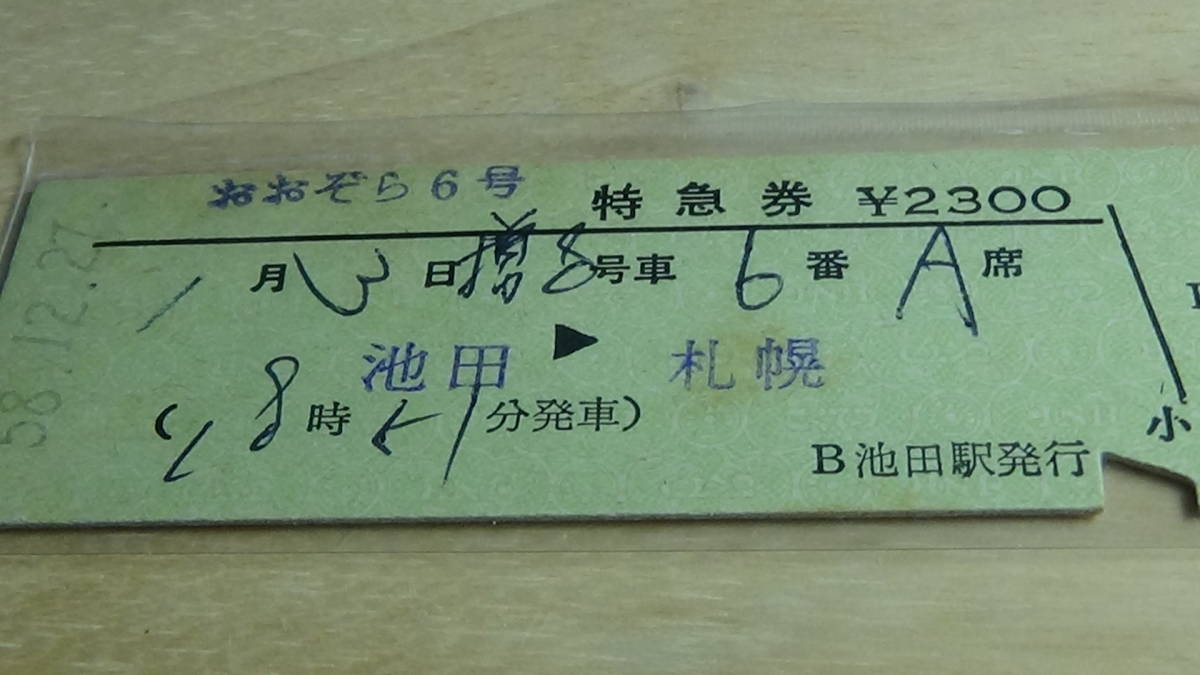 おおぞら6号
特急券 ¥2300
1月3日増8号車 6番 A席
池田▶札幌
(18時21分発車)
B池田駅発行
58.12.27
小